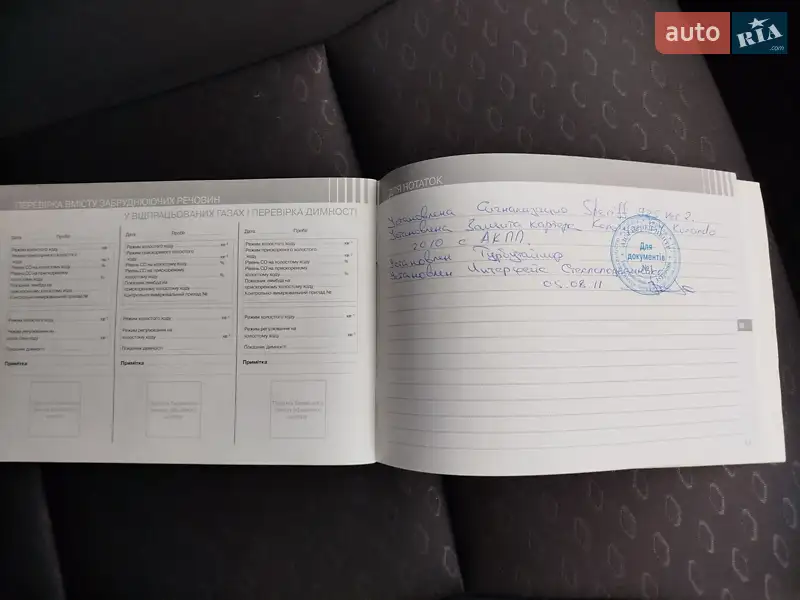 auto
RIA
.com
ПЕРЕВІРКА ВМІСТУ ЗАБРУДНЮЮЧИХ РЕЧОВИН
У ВІДПРАЦЬОВАНИХ ГАЗАХ І ПЕРЕВІРКА ДИМНОСТІ
Дата Пробіг
Режим холостого ходу хв⁻¹
Режим прискореного холостого
ходу хв⁻¹
Рівень СО на холостому ходу %
Рівень СО на прискореному
холостому ходу %
Показник лямбда на
прискореному холостому ходу
Контрольно-вимірювальний прилад №
Режим холостого ходу хв⁻¹
Режим регулювання на
холостому ходу хв⁻¹
Показник димності
Примітка
Дата Пробіг
Режим холостого ходу хв⁻¹
Режим прискореного холостого
ходу хв⁻¹
Рівень СО на холостому ходу %
Рівень СО на прискореному
холостому ходу %
Показник лямбда на
прискореному холостому ходу
Контрольно-вимірювальний прилад №
Режим холостого ходу хв⁻¹
Режим регулювання на
холостому ходу хв⁻¹
Показник димності
Примітка
Дата Пробіг
Режим холостого ходу хв⁻¹
Режим прискореного холостого
ходу хв⁻¹
Рівень СО на холостому ходу %
Рівень СО на прискореному
холостому ходу %
Показник лямбда на
прискореному холостому ходу
Контрольно-вимірювальний прилад №
Режим холостого ходу хв⁻¹
Режим регулювання на
холостому ходу хв⁻¹
Показник димності
Примітка
ДЛЯ НОТАТОК
Установлена Сигнализацию Sheriff
Установлена Защита картера
2010 с АКПП.
Установлен Турбтаймер
Установлен Интерфейс
05.08.11
Для
документів